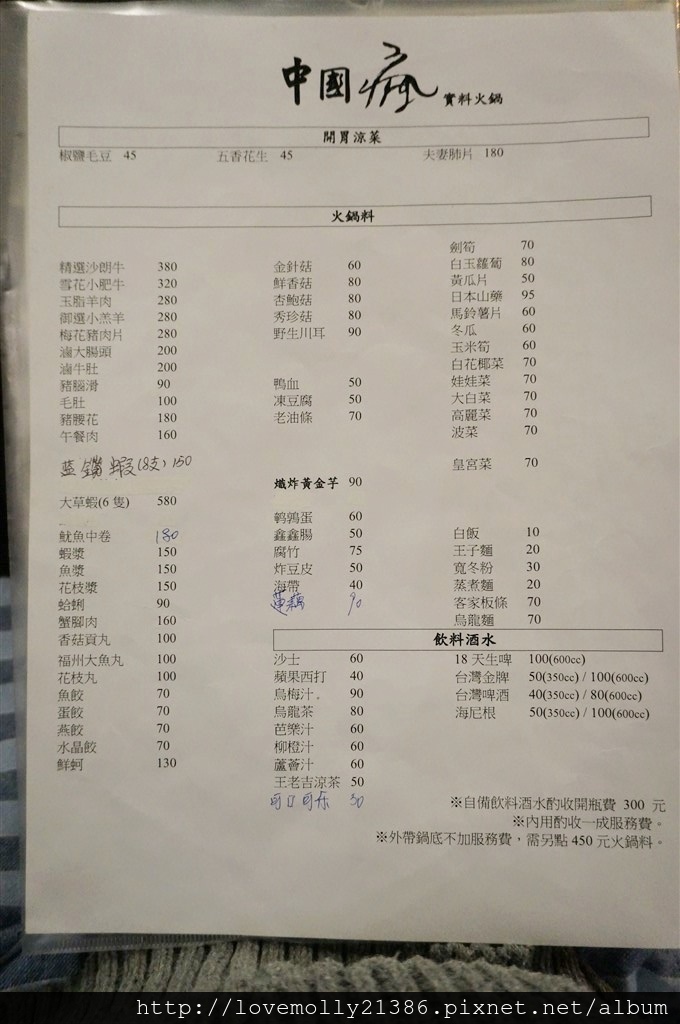 中國瘋 實料火鍋
開胃涼菜
椒鹽毛豆 45 五香花生 45 夫妻肺片 180
火鍋料
精選沙朗牛 380
雪花小肥牛 320
玉脂羊肉 280
御選小羔羊 280
梅花豬肉片 280
滷大腸頭 200
滷牛肚 200
豬腦滑 90
毛肚 100
豬腰花 180
午餐肉 160
蓝鑽蝦(8支) 150
大草蝦(6 隻) 580
魷魚中卷 180
蝦漿 150
魚漿 150
花枝漿 150
蛤蜊 90
蟹腳肉 160
香菇貢丸 100
福州大魚丸 100
花枝丸 100
魚餃 70
蛋餃 70
燕餃 70
水晶餃 70
鮮蚵 130
金針菇 60
鮮香菇 80
杏鮑菇 80
秀珍菇 80
野生川耳 90
鴨血 50
凍豆腐 50
老油條 70
熾炸黃金芋 90
鹌鶉蛋 60
鑫鑫腸 50
腐竹 75
炸豆皮 50
海帶 40
蓮藕 90
劍筍 70
白玉蘿蔔 80
黃瓜片 50
日本山藥 95
馬鈴薯片 60
冬瓜 60
玉米筍 60
白花椰菜 70
娃娃菜 70
大白菜 70
高麗菜 70
波菜 70
皇宮菜 70
白飯 10
王子麵 20
寬冬粉 30
蒸煮麵 20
客家板條 70
烏龍麵 70
飲料酒水
沙士 60
蘋果西打 40
烏梅汁。 90
烏龍茶 80
芭樂汁 60
柳橙汁 60
蘆薈汁 60
王老吉涼茶 50
可口可乐 30
18 天生啤 100(600cc)
台灣金牌 50(350cc) / 100(600cc)
台灣啤酒 40(350cc) / 80(600cc)
海尼根 50(350cc) / 100(600cc)
※自備飲料酒水酌收開瓶費 300 元
※內用酌收一成服務費。
※外帶鍋底不加服務費，需另點 450 元火鍋料。
http://lovemolly21386.pixnet.net/album